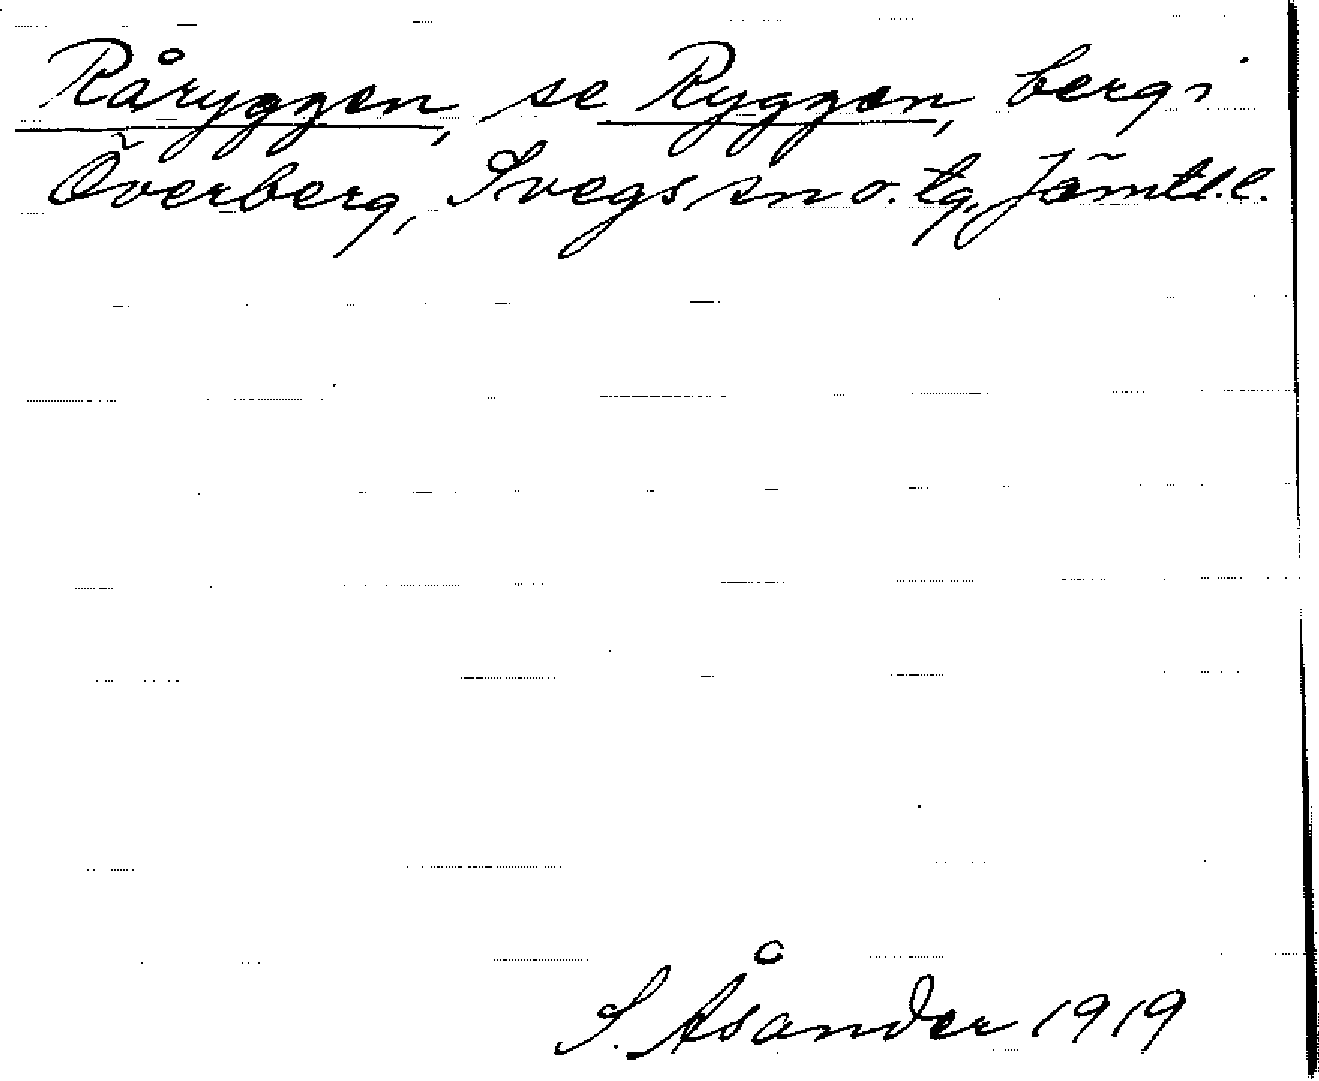 Råryggen, se Ryggen, berg i
Överberg, Svegs sn o. tg, Jämtl. l.
S. Åsander 1919